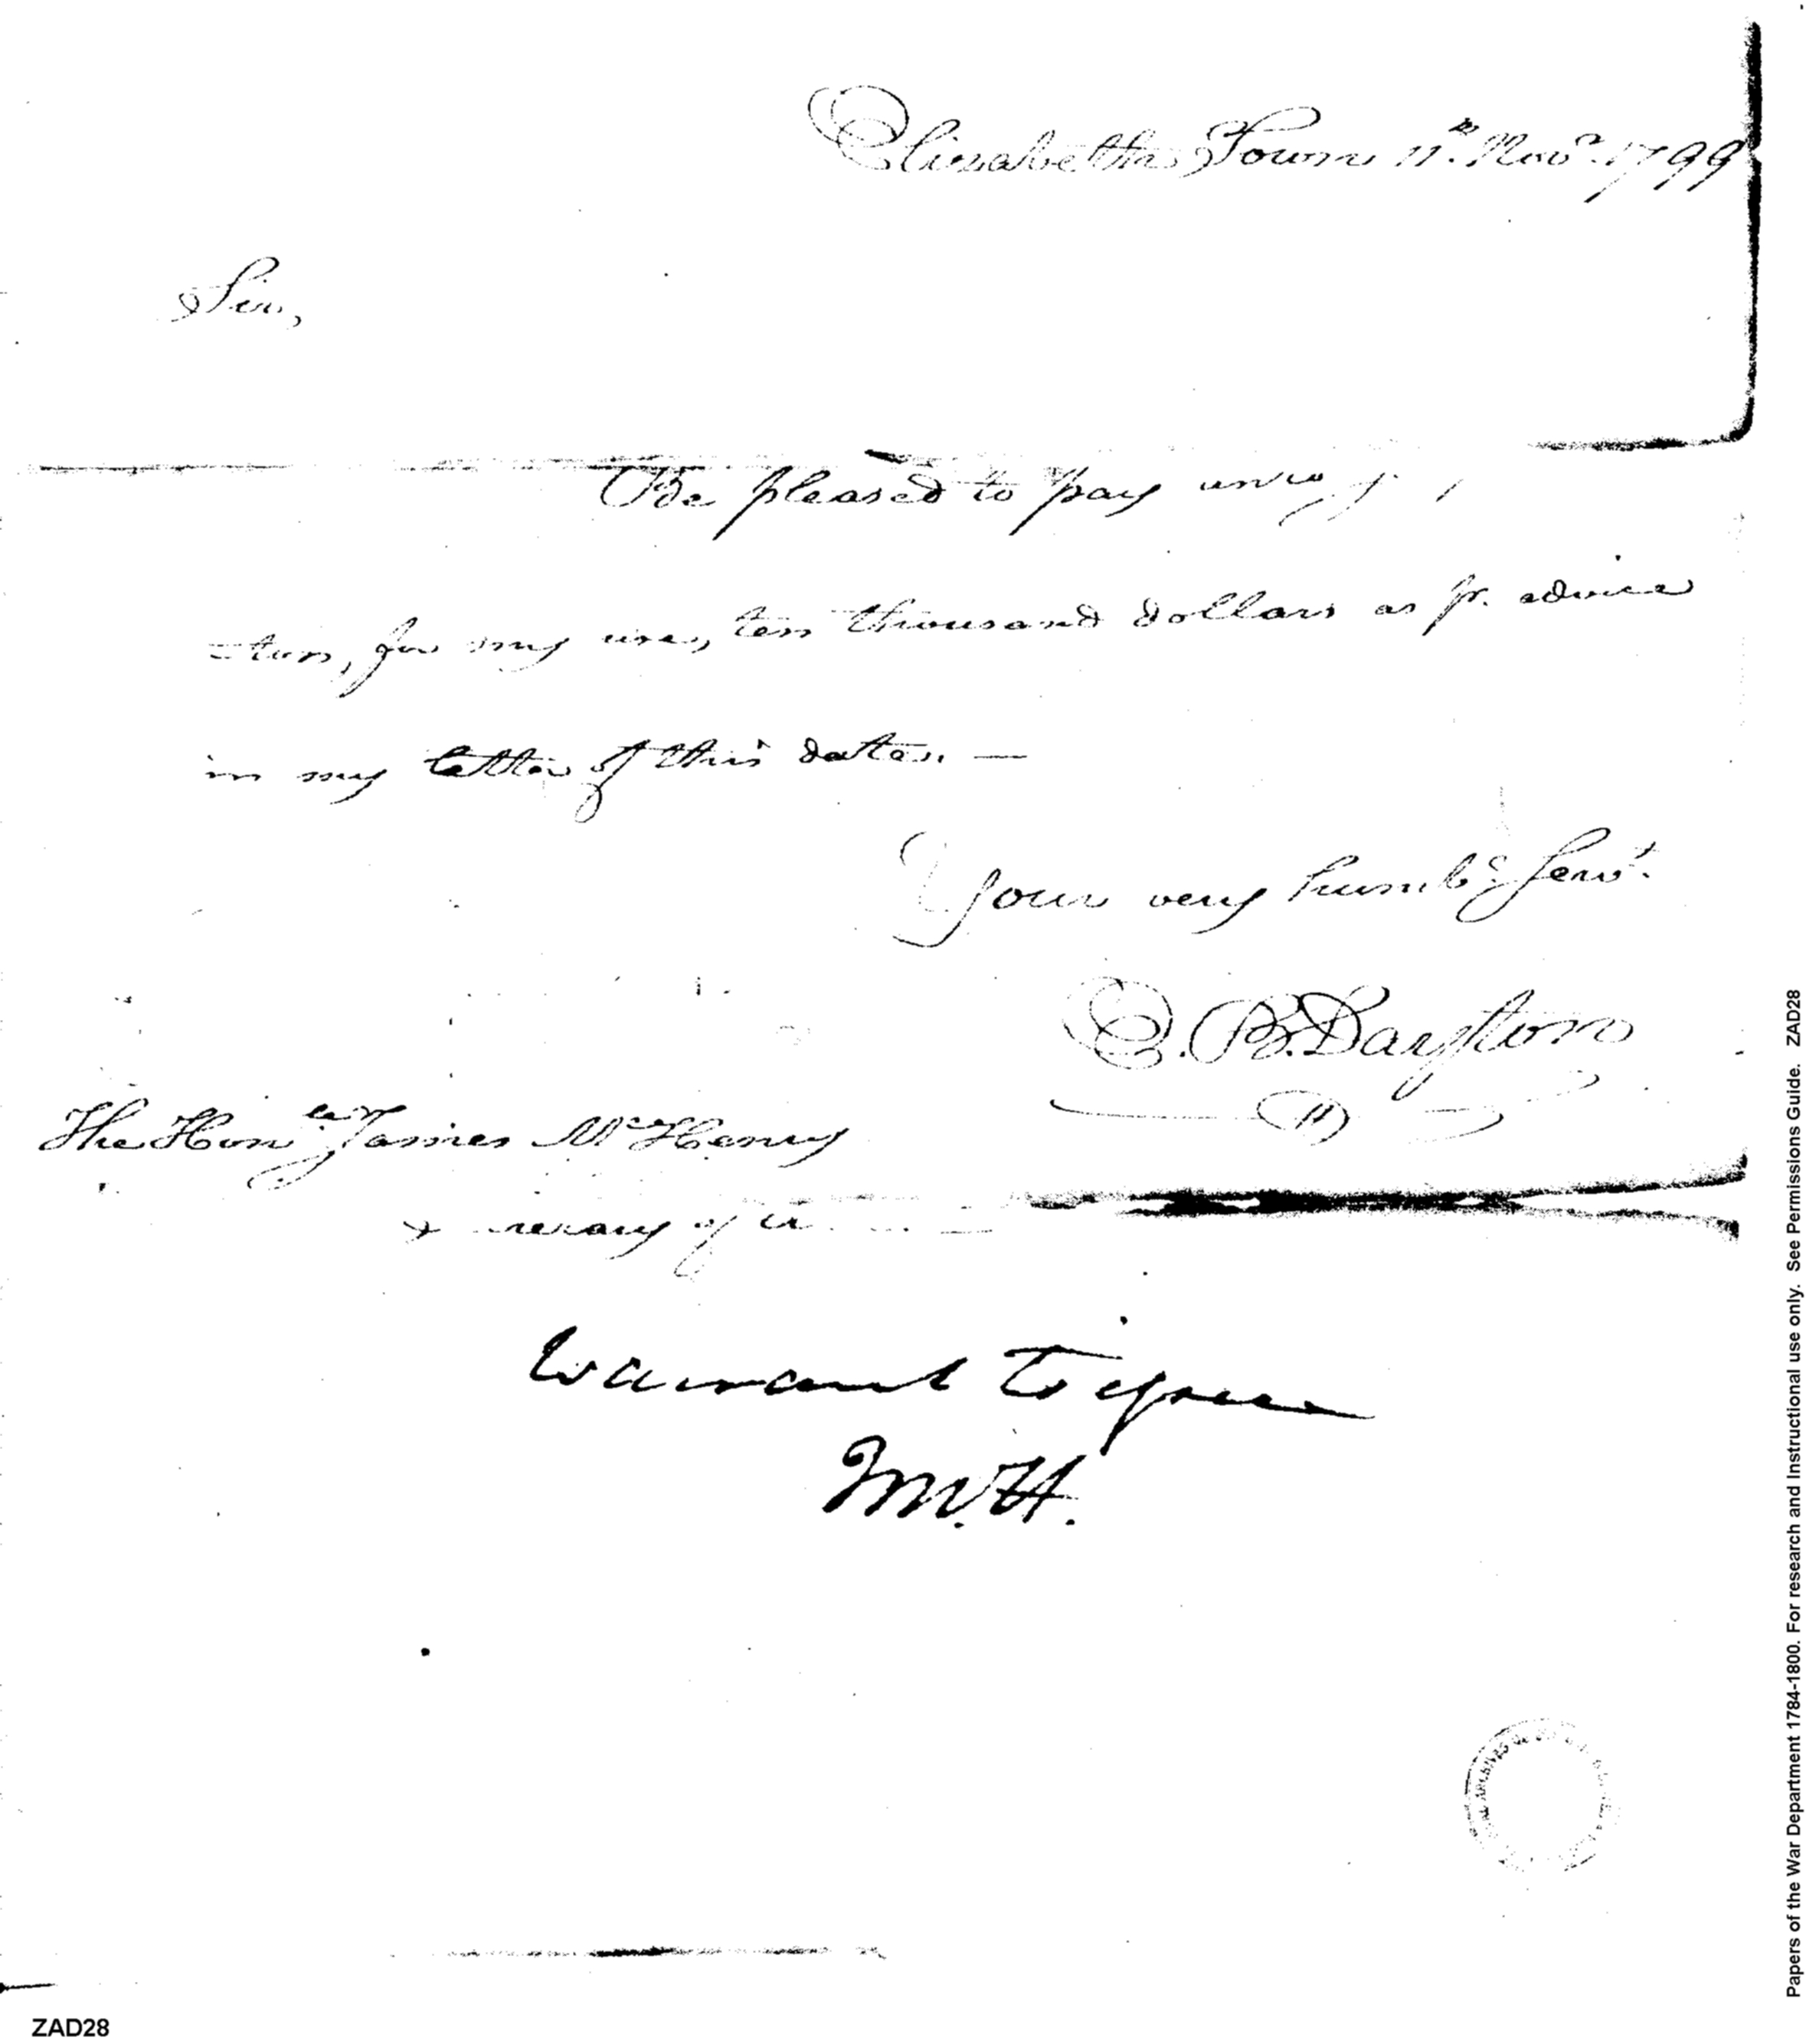 Elizabeth Town 11th. Novr. 1799
Sir,
Be pleased to pay unto
ton, for my use, ten thousand dollars as pr. advice
in my letter of this date. —
Your very humbe. servt.
E. B. Dayton
The Honble James McHenry
of
Warrant to issue
McH.
Papers of the War Department 1784-1800. For research and Instructional use only. See Permissions Guide. ZAD28
ZAD28